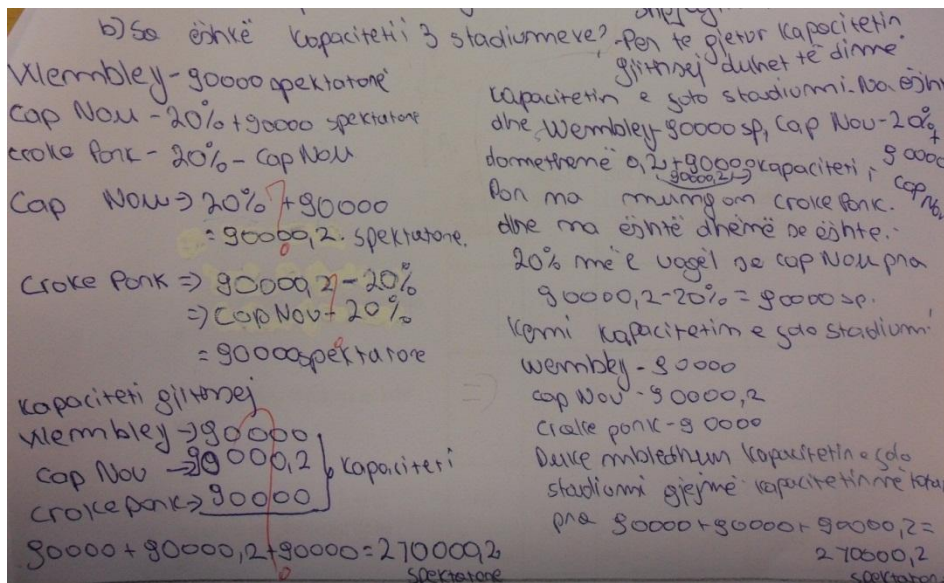 b) Sa është kapaciteti i 3 stadiumeve?
Wembley - 90000 spektatorë
Cap Nou - 20% + 90000 spektatore
croke Park - 20% - Cap Nou
Cap Nou => 20% + 90000
= 90000,2 spektatore.
Croke Park => 90000,2 - 20%
=> Cap Nou - 20%
= 90000 spektatore
Kapaciteti gjithsej
Wembley -> 90000
Cap Nou -> 90000,2 kapaciteti
Croke Park -> 90000
90000 + 90000,2 + 90000 = 270000,2
spektatore
-Per te gjetur kapacitetin
gjithsej duhet të dimë
kapacitetin e çdo stadiumi. Na është
dhe Wembley - 90000 sp, Cap Nou - 20% +
90000
domethënë 0,2 + 90000 kapaciteti,
90000,2
Cap No
Por na mungon Croke Park.
dhe na është dhënë se është
20% më e vogël se Cap Nou pra
90000,2 - 20% = 90000 sp.
Kemi kapacitetin e çdo stadiumi
Wembley - 90000
Cap Nou - 90000,2
Croke park - 90000
Duke mbledhur kapacitetin e çdo
stadiumi gjejmë kapacitetin në total
pra 90000 + 90000 + 90000,2 =
270000,2
spektatore